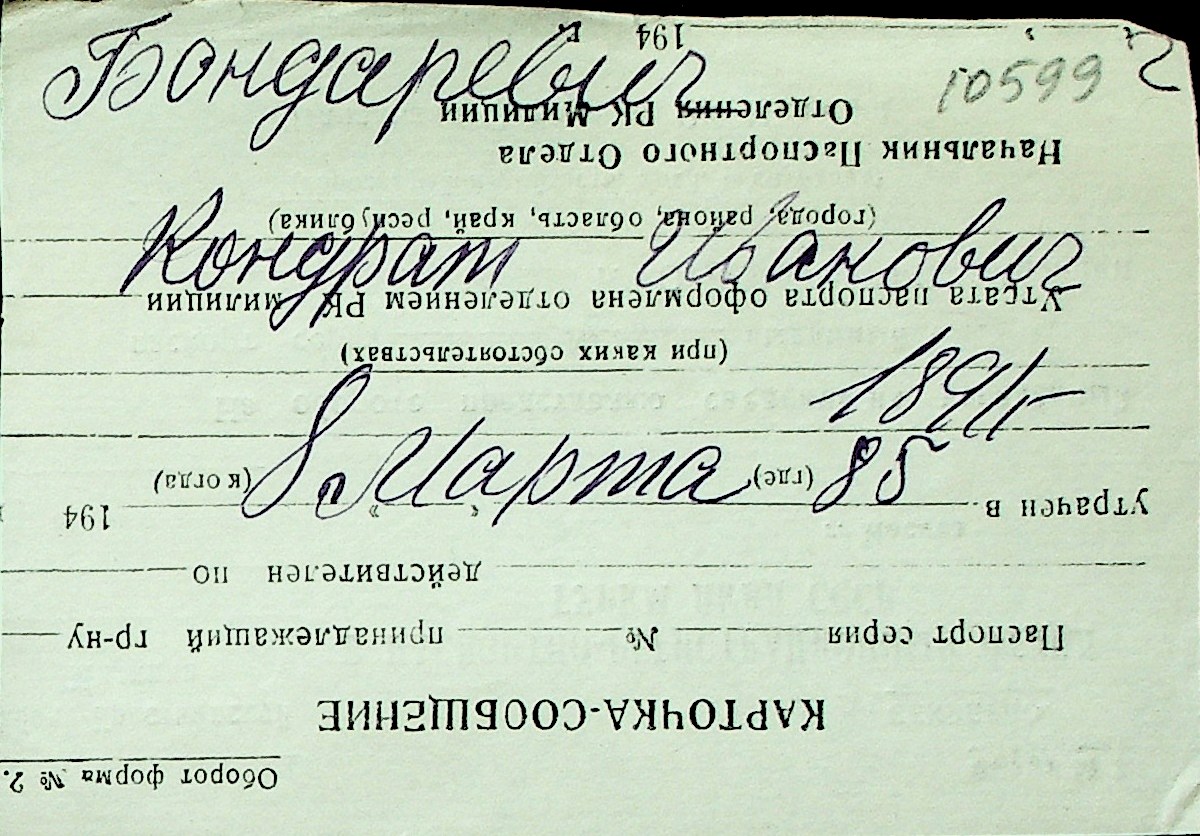 10599
Бондаревич
Кондрат Иванович
8 Марта 85
Оборот форма № 2.
КАРТОЧКА-СООБЩЕНИЕ
Паспорт серия № принадлежащий гр-ну
действителен по
утрачен в „ “ 194
(где) (когда)
(при каких обстоятельствах)
Утсата паспорта оформлена отделением РК милиции
(города, района, область, край, республика)
Начальник Паспортного Отдела
Отделения РК Милиции
194 г.